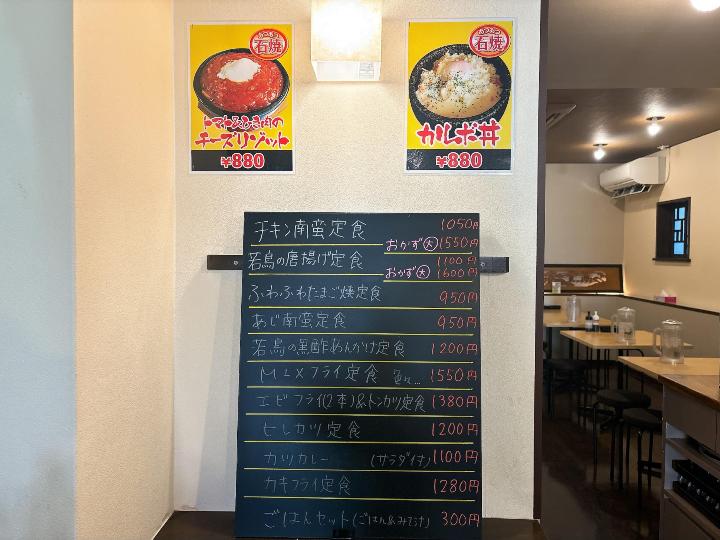 あつあつ
石焼
トマトとひき肉の
チーズリゾット
¥880
あつあつ
石焼
カルボ丼
¥880
チキン南蛮定食 1050円
おかず大 1550円
若鳥の唐揚げ定食 1100円
おかず大 1600円
ふわふわたまご焼定食 950円
あじ南蛮定食 950円
若鳥の黒酢あんかけ定食 1200円
MIXフライ定食 1550円
エビフライ(2本)&トンカツ定食 1380円
ヒレカツ定食 1200円
カツカレー (サラダ付) 1100円
カキフライ定食 1280円
ごはんセット(ごはん&みそ汁) 300円